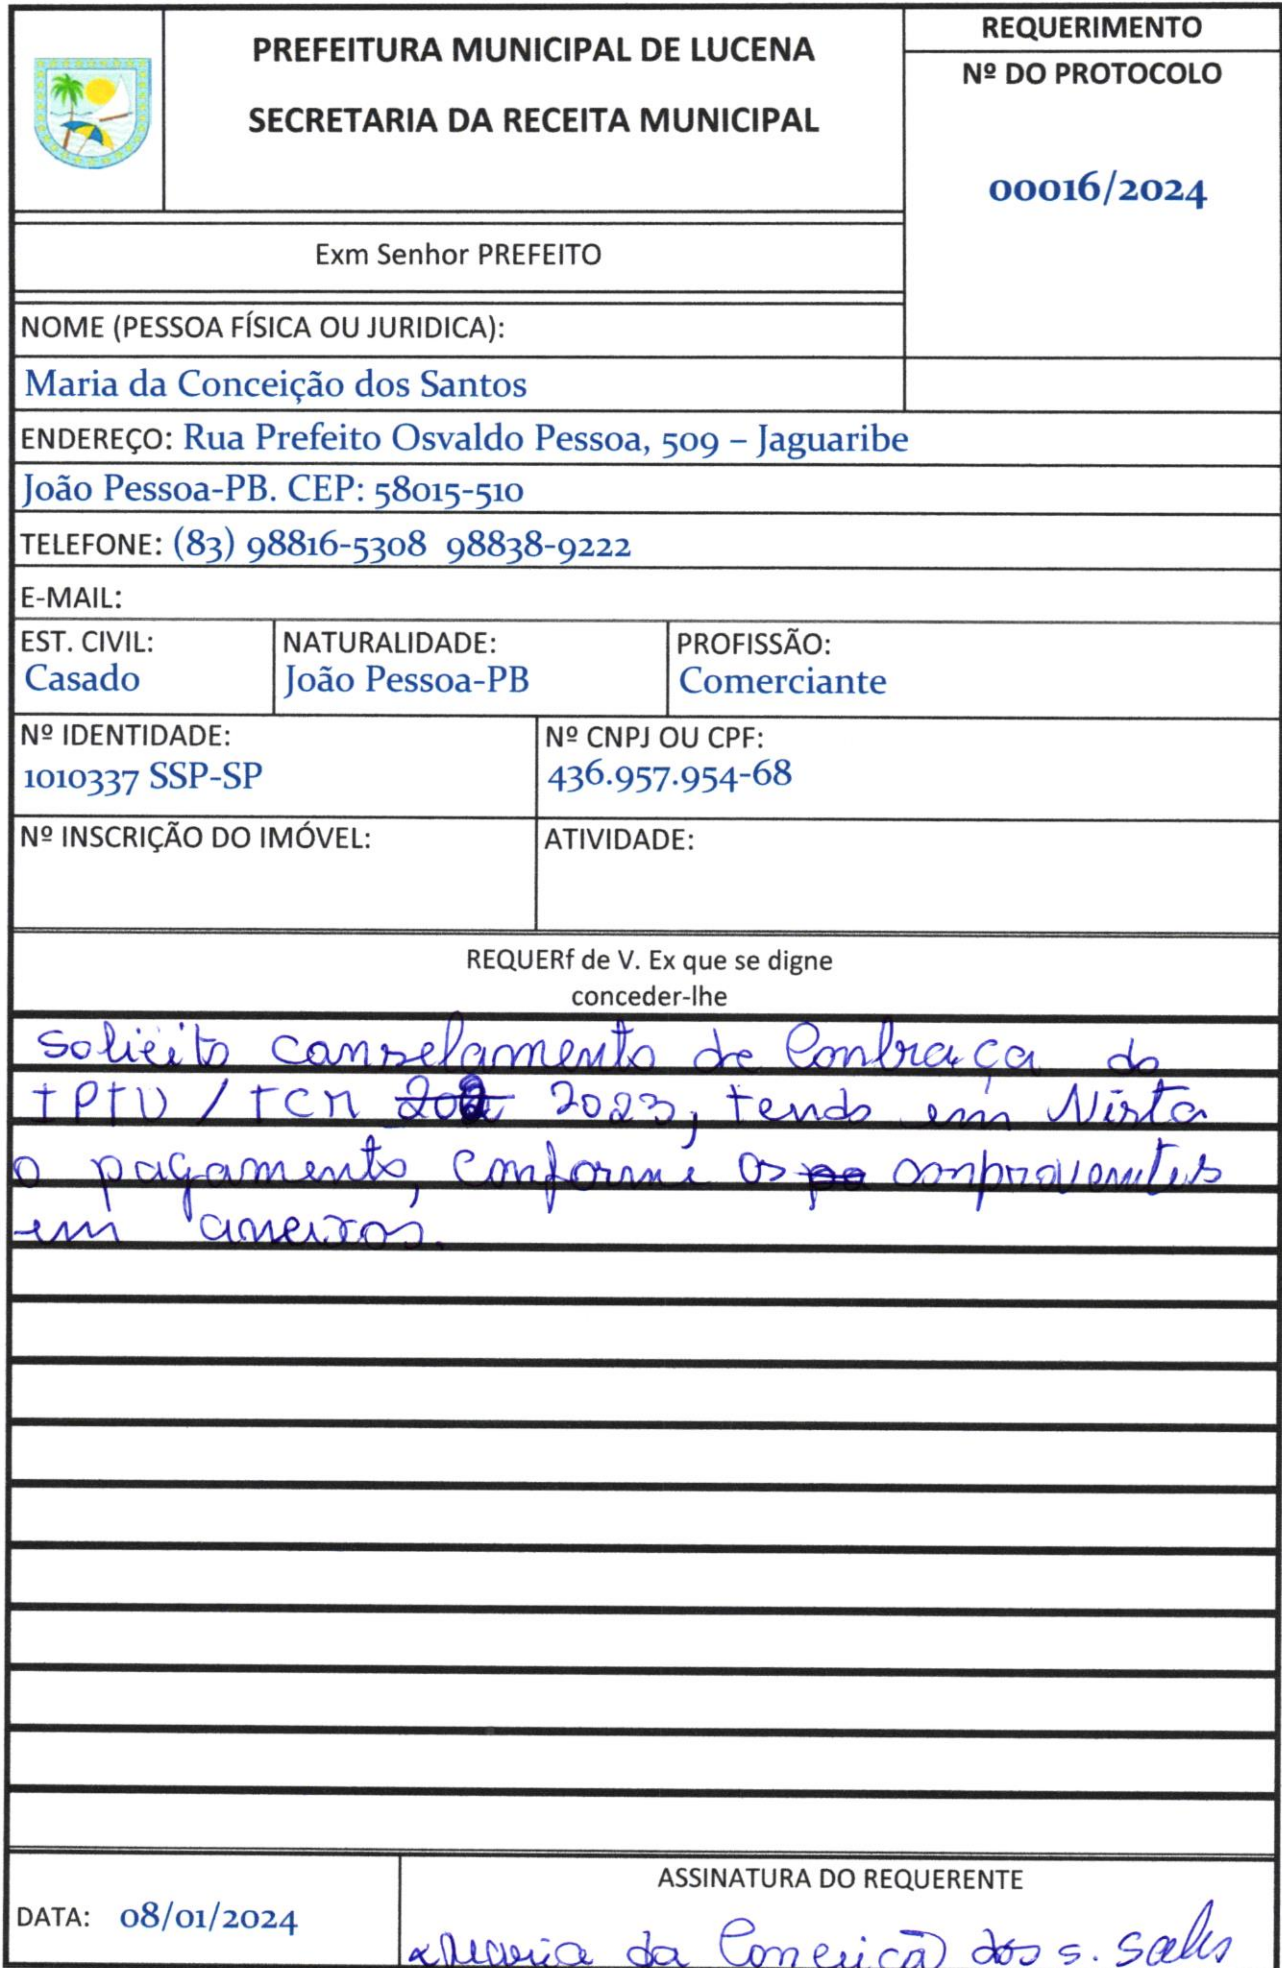 PREFEITURA MUNICIPAL DE LUCENA
SECRETARIA DA RECEITA MUNICIPAL
REQUERIMENTO
Nº DO PROTOCOLO
00016/2024
Exm Senhor PREFEITO
NOME (PESSOA FÍSICA OU JURIDICA):
Maria da Conceição dos Santos
ENDEREÇO: Rua Prefeito Osvaldo Pessoa, 509 – Jaguaribe
João Pessoa-PB. CEP: 58015-510
TELEFONE: (83) 98816-5308 98838-9222
E-MAIL:
EST. CIVIL:
Casado
NATURALIDADE:
João Pessoa-PB
PROFISSÃO:
Comerciante
Nº IDENTIDADE:
1010337 SSP-SP
Nº CNPJ OU CPF:
436.957.954-68
Nº INSCRIÇÃO DO IMÓVEL:
ATIVIDADE:
REQUERf de V. Ex que se digne
conceder-lhe
Solicito canselamento de Conbraça do
IPTU / TCR 2023, tendo em Vista
o pagamento, conforme os comproventes
em aneixos.
DATA: 08/01/2024
ASSINATURA DO REQUERENTE
x Maria da Conceição dos S. Sales